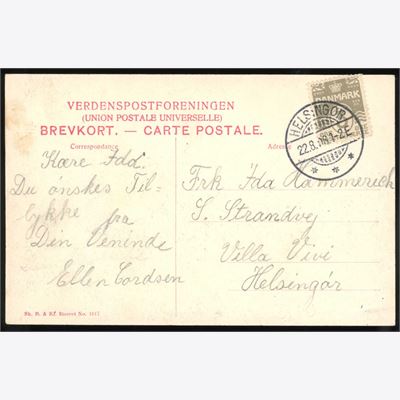 VERDENSPOSTFORENINGEN
(UNION POSTALE UNIVERSELLE)
BREVKORT. — CARTE POSTALE.
Correspondance
Adresse
DANMARK
HELSINGØR
22.8.
1-2E
Kære Idd.
Du ønskes Til-
lykke fra
Din Veninde
Ellen Cordsen
Frk Ida Hammerich
S. Strandvej
Villa Vivi
Helsingør
Stenders No. 1617